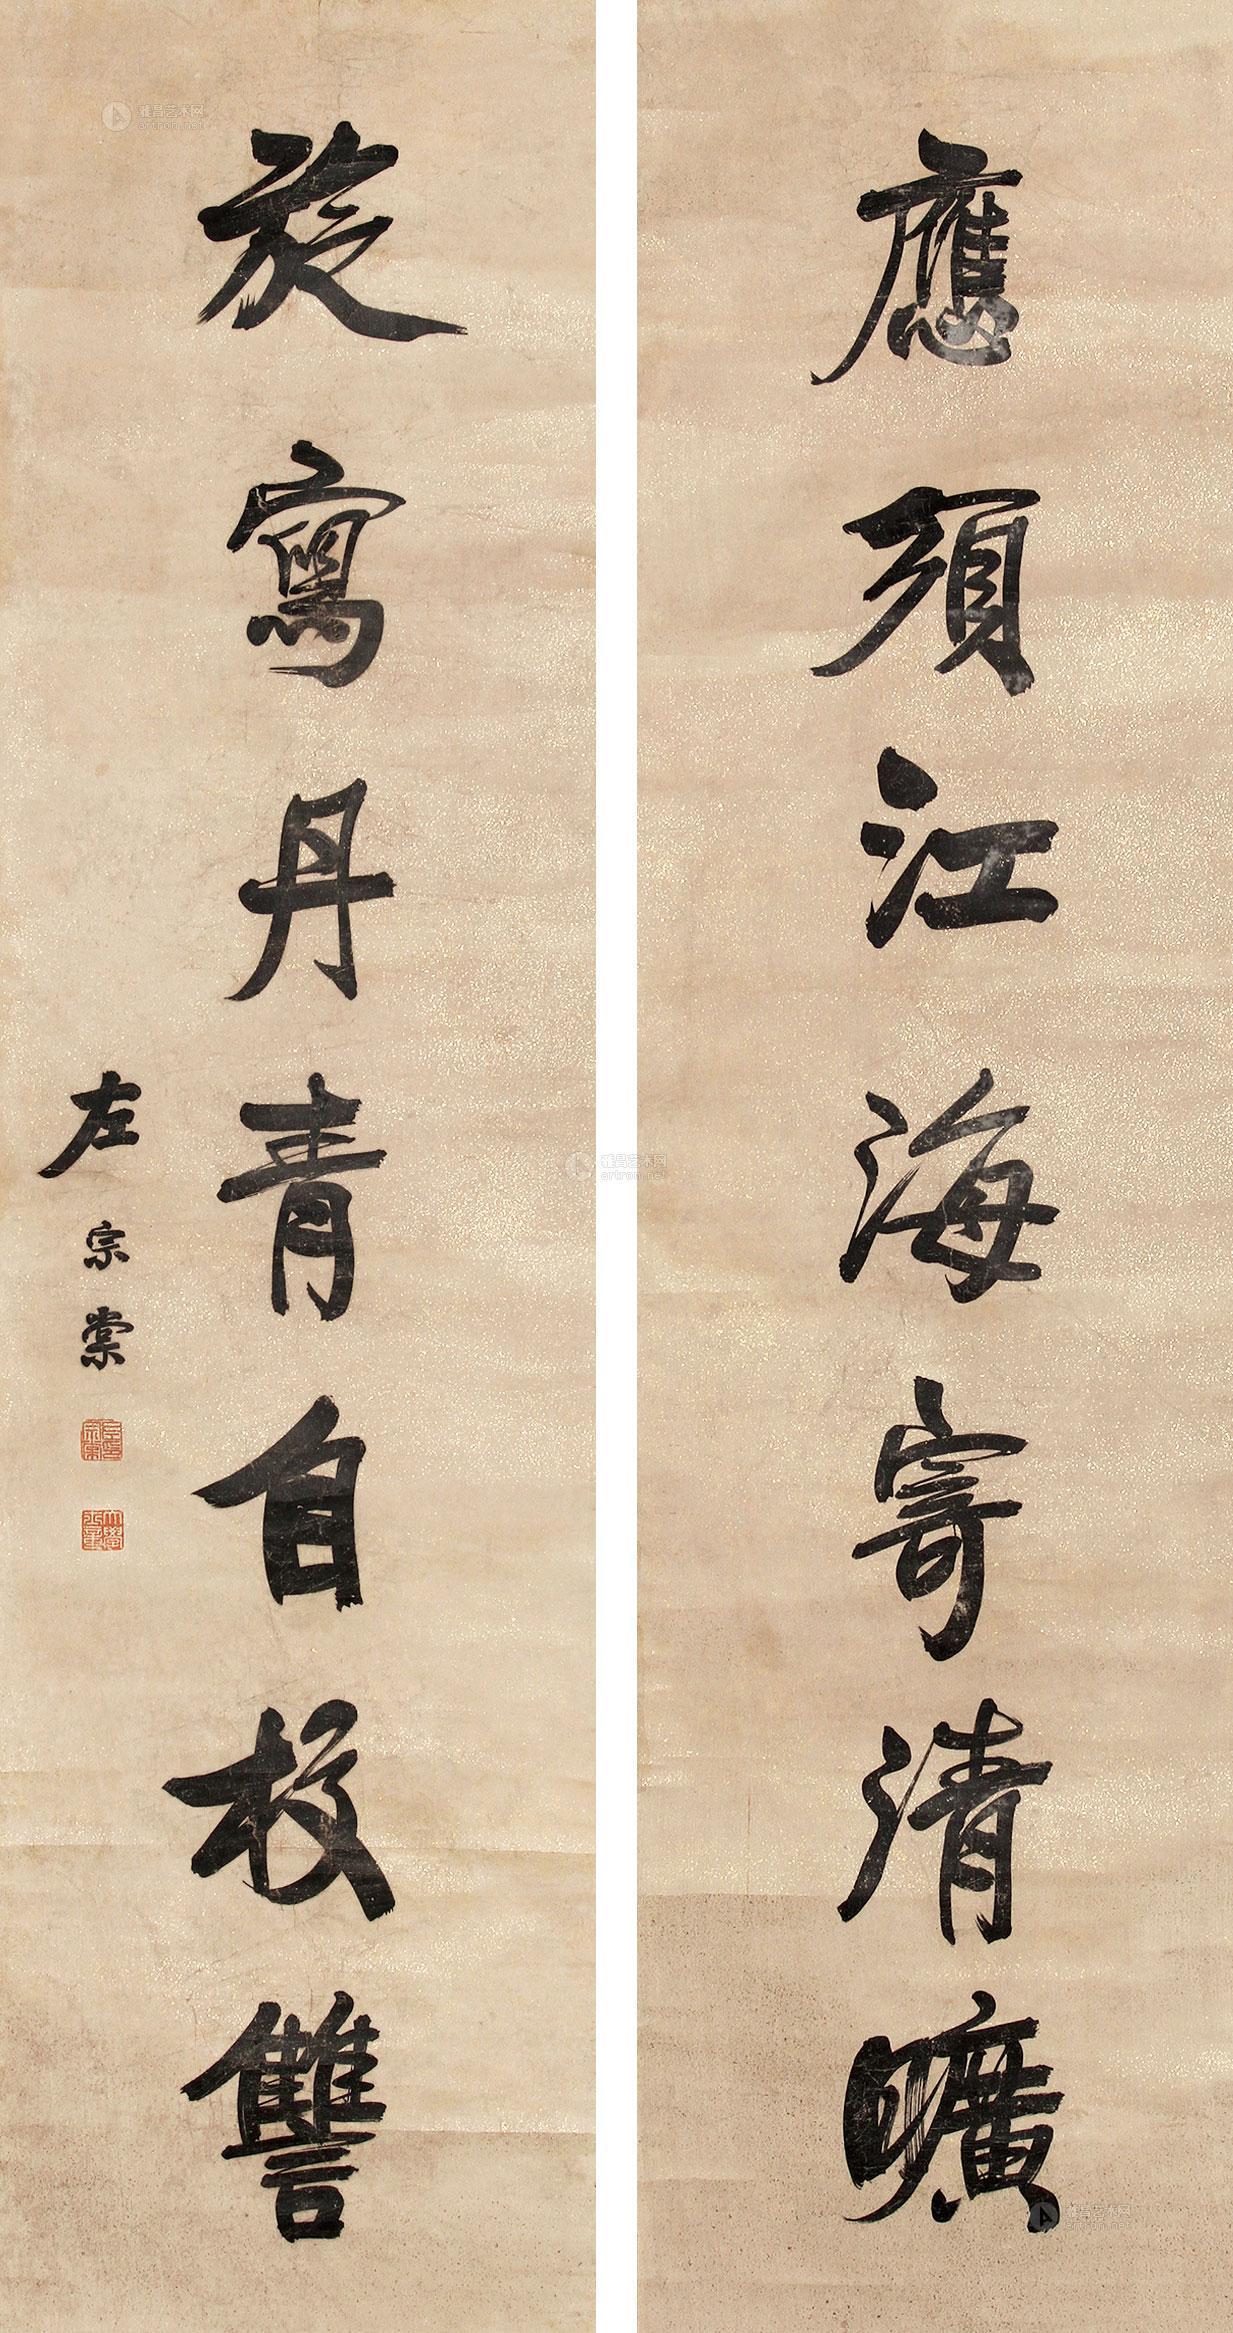 應須江海寄清曠
旋寫丹青自校讎
左宗棠
雅昌艺术网
artron.net
雅昌艺术网
artron.net
雅昌艺术网
artron.net